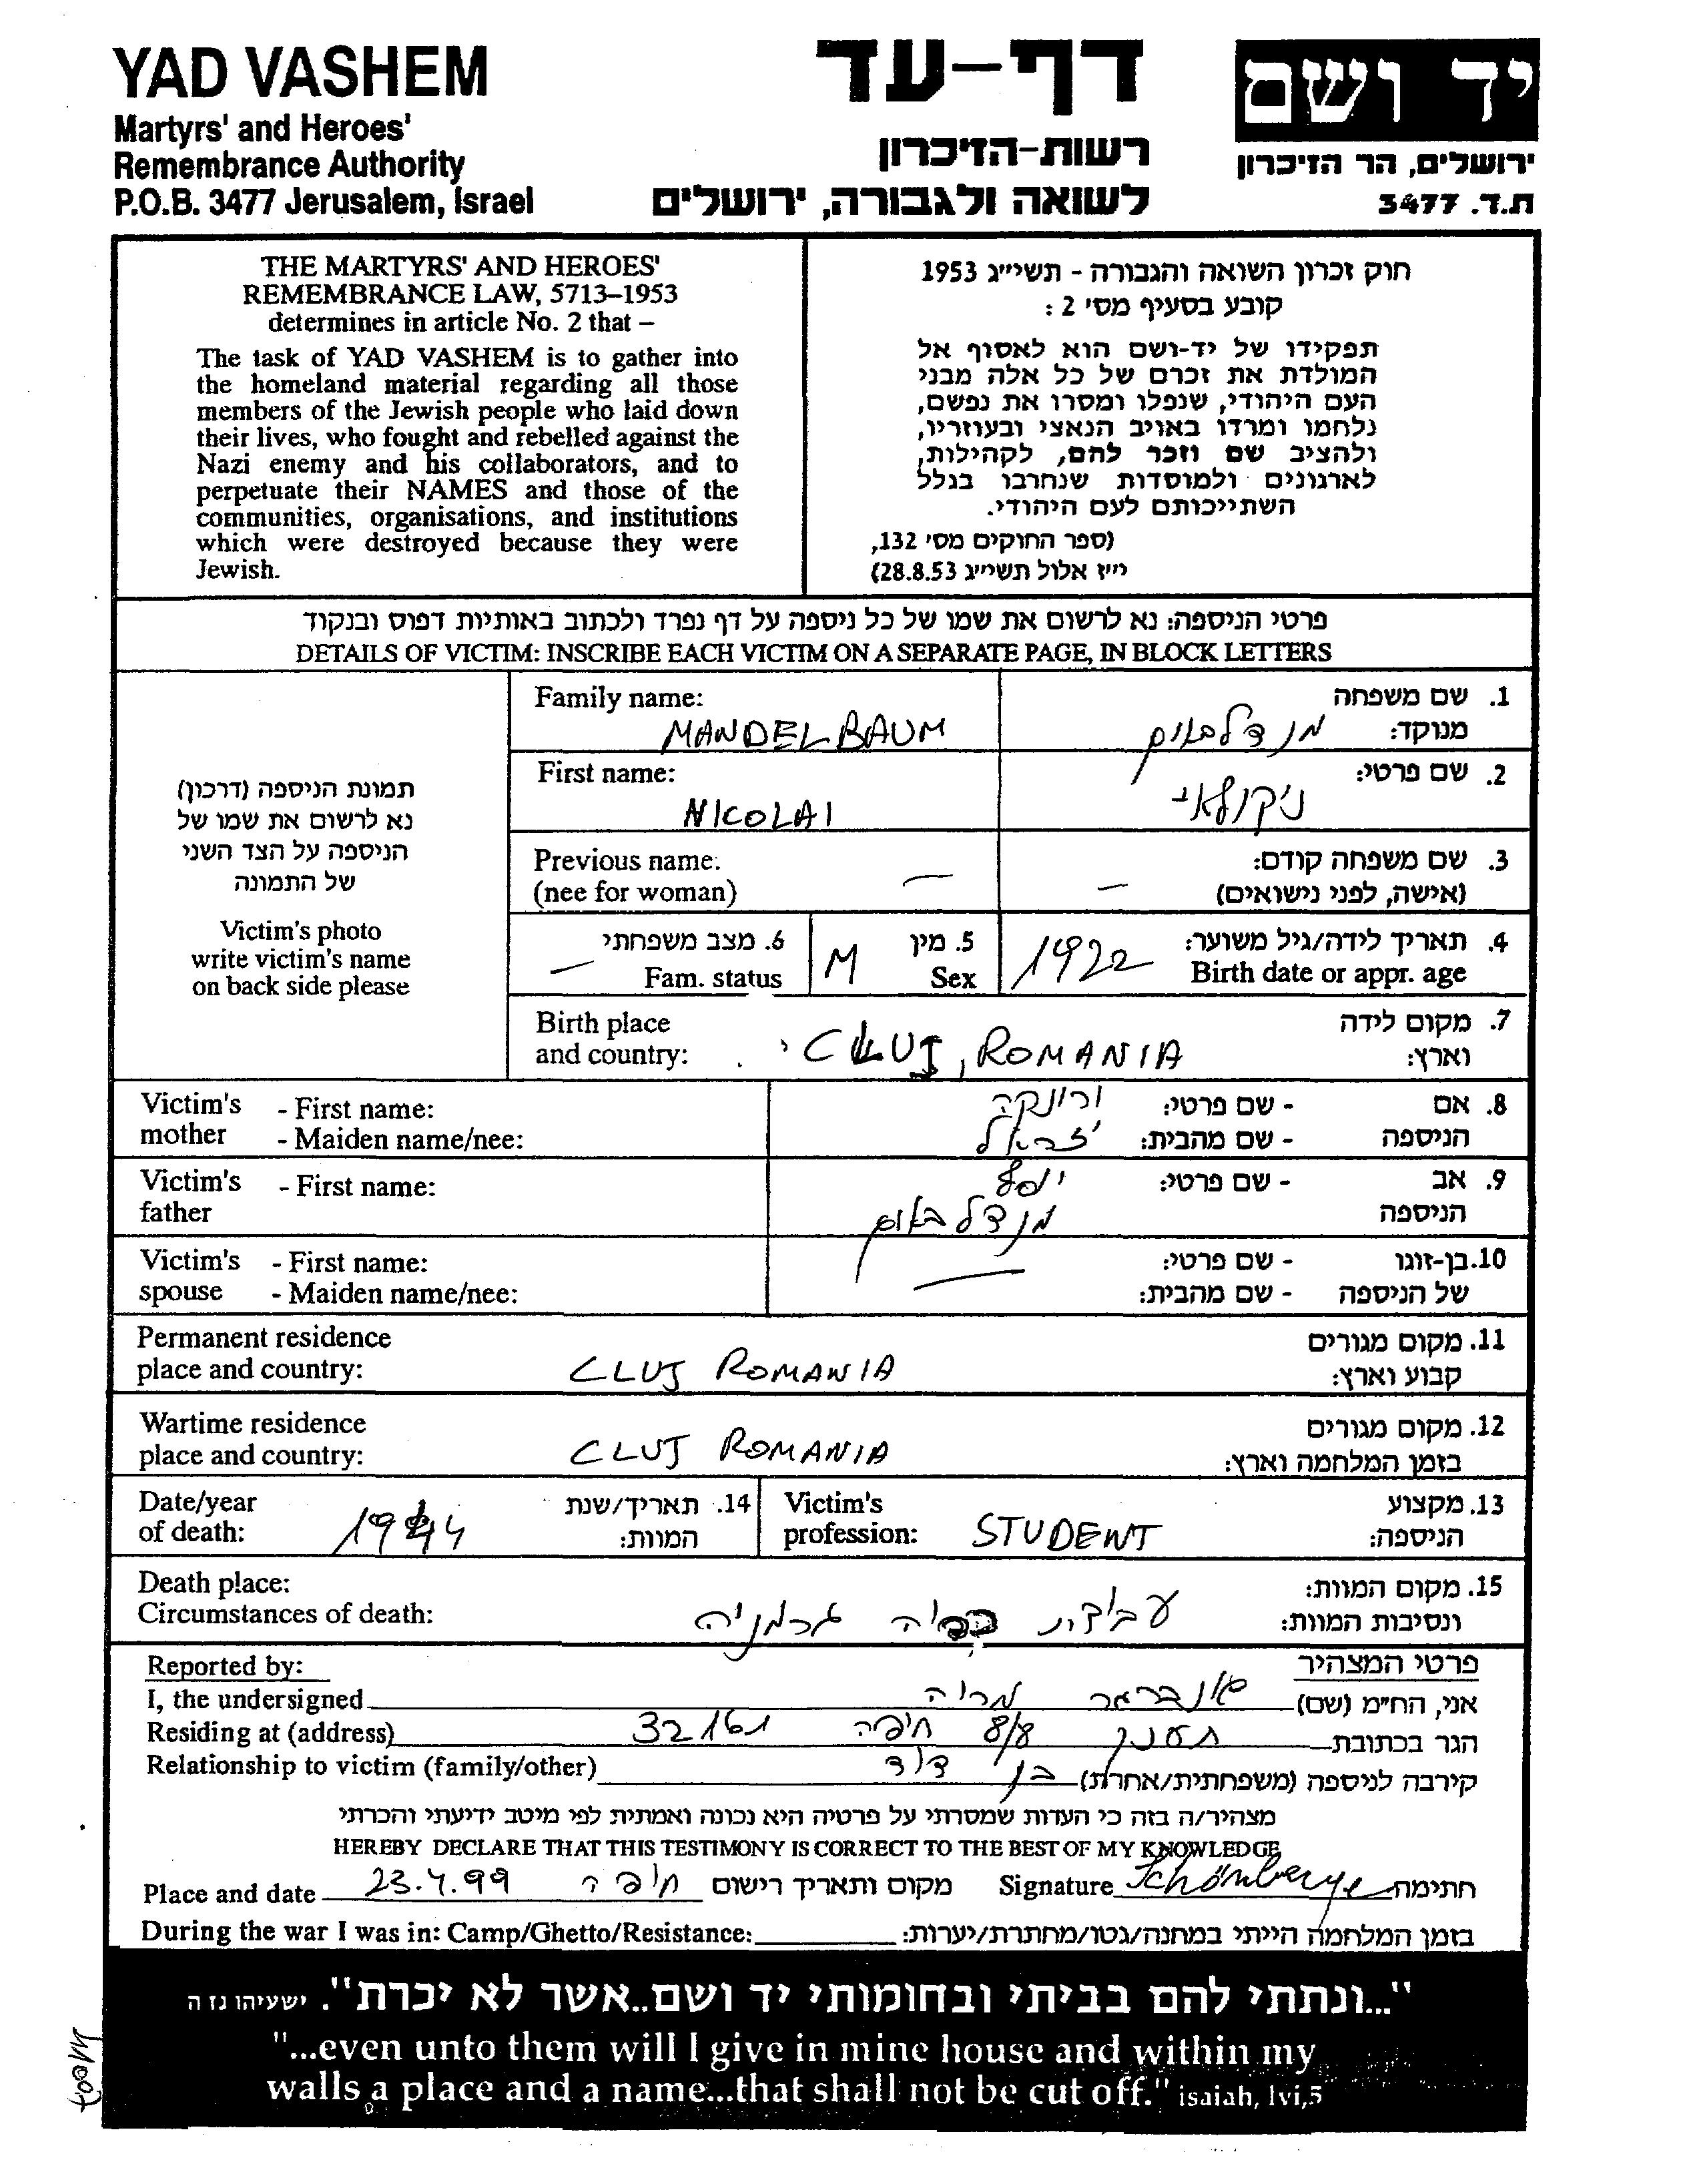 YAD VASHEM
Martyrs' and Heroes'
Remembrance Authority
P.O.B. 3477 Jerusalem, Israel
דף-עד
רשות-הזיכרון
לשואה ולגבורה, ירושלים
יד ושם
ירושלים, הר הזיכרון
ת.ד. 3477
THE MARTYRS' AND HEROES'
REMEMBRANCE LAW, 5713–1953
determines in article No. 2 that –
The task of YAD VASHEM is to gather into
the homeland material regarding all those
members of the Jewish people who laid down
their lives, who fought and rebelled against the
Nazi enemy and his collaborators, and to
perpetuate their NAMES and those of the
communities, organisations, and institutions
which were destroyed because they were
Jewish.
חוק זכרון השואה והגבורה - תשי״ג 1953
קובע בסעיף מס׳ 2 :
תפקידו של יד-ושם הוא לאסוף אל
המולדת את זכרם של כל אלה מבני
העם היהודי, שנפלו ומסרו את נפשם,
נלחמו ומרדו באויב הנאצי ובעוזריו,
ולהציב שם וזכר להם, לקהילות,
לארגונים ולמוסדות שנחרבו בגלל
השתייכותם לעם היהודי.
(ספר החוקים מס׳ 132,
י״ז אלול תשי״ג 28.8.53)
פרטי הניספה: נא לרשום את שמו של כל ניספה על דף נפרד ולכתוב באותיות דפוס ובנקוד
DETAILS OF VICTIM: INSCRIBE EACH VICTIM ON A SEPARATE PAGE, IN BLOCK LETTERS
תמונת הניספה (דרכון)
נא לרשום את שמו של
הניספה על הצד השני
של התמונה
Victim's photo
write victim's name
on back side please
Family name: 1. שם משפחה
MANDELBAUM מנדלבאום מנוקד:
First name: 2. שם פרטי:
NICOLAI ניקולאי
Previous name: 3. שם משפחה קודם:
(nee for woman) — — (אישה, לפני נישואים)
6. מצב משפחתי 5. מין 4. תאריך לידה/גיל משוער:
— Fam. status M Sex 1922 Birth date or appr. age
Birth place 7. מקום לידה
and country: CLUJ, ROMANIA וארץ:
Victim's - First name: ורונקה - שם פרטי: 8. אם
mother - Maiden name/nee: - שם מהבית: הניספה
Victim's - First name: יוסף - שם פרטי: 9. אב
father מנדלבאום הניספה
Victim's - First name: - שם פרטי: 10. בן-זוגו
spouse - Maiden name/nee: — - שם מהבית: של הניספה
Permanent residence 11. מקום מגורים
place and country: CLUJ ROMANIA קבוע וארץ:
Wartime residence 12. מקום מגורים
place and country: CLUJ ROMANIA בזמן המלחמה וארץ:
Date/year 14. תאריך/שנת Victim's 13. מקצוע
of death: 1944 המוות: profession: STUDENT הניספה:
Death place: 15. מקום המוות:
Circumstances of death: עבודת כפיה גרמניה ונסיבות המוות:
Reported by: פרטי המצהיר
I, the undersigned שונברגר מריה אני, הח״מ (שם)
Residing at (address) תענך 8/8 חיפה 32161 הגר בכתובת
Relationship to victim (family/other) בן דוד קירבה לניספה (משפחתית/אחרת)
מצהיר/ה בזה כי העדות שמסרתי על פרטיה היא נכונה ואמתית לפי מיטב ידיעתי והכרתי
HEREBY DECLARE THAT THIS TESTIMONY IS CORRECT TO THE BEST OF MY KNOWLEDGE
Place and date 23.4.99 חיפה מקום ותאריך רישום Signature Schönberger חתימה
During the war I was in: Camp/Ghetto/Resistance: בזמן המלחמה הייתי במחנה/גטו/מחתרת/יערות:
"...ונתתי להם בביתי ובחומותי יד ושם..אשר לא יכרת". ישעיהו נו ה
"...even unto them will I give in mine house and within my
walls a place and a name...that shall not be cut off." isaiah, lvi,5